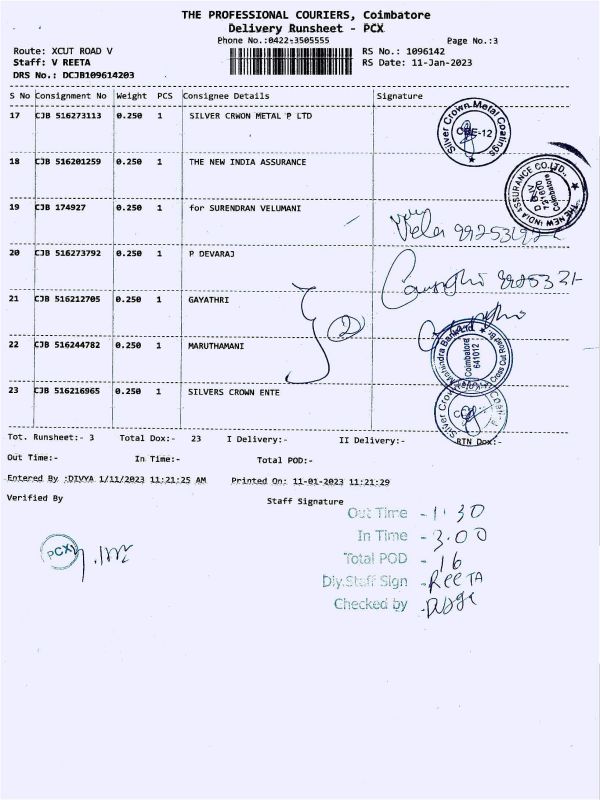 THE PROFESSIONAL COURIERS, Coimbatore
Delivery Runsheet - PCX
Phone No.:0422-3505555
Page No.:3
Route: XCUT ROAD V
RS No.: 1096142
Staff: V REETA
RS Date: 11-Jan-2023
DRS No.: DCJB109614203
S No Consignment No Weight PCS Consignee Details Signature
17 CJB 516273113 0.250 1 SILVER CRWON METAL P LTD
Silver Crown Metal Coatings
CBE-12
18 CJB 516201259 0.250 1 THE NEW INDIA ASSURANCE
THE NEW INDIA ASSURANCE CO.LTD.,
Coimbatore
19 CJB 174927 0.250 1 for SURENDRAN VELUMANI
20 CJB 516273792 0.250 1 P DEVARAJ
21 CJB 516212705 0.250 1 GAYATHRI
2
22 CJB 516244782 0.250 1 MARUTHAMANI
Coimbatore
641012
23 CJB 516216965 0.250 1 SILVERS CROWN ENTE
Tot. Runsheet:- 3 Total Dox:- 23 I Delivery:- II Delivery:- RTN Dox:-
Out Time:- In Time:- Total POD:-
Entered By :DIVYA 1/11/2023 11:21:25 AM Printed On: 11-01-2023 11:21:29
Verified By Staff Signature
PCX
Out Time - 1.30
In Time - 3.00
Total POD - 16
Dly.Staff Sign - REETA
Checked by